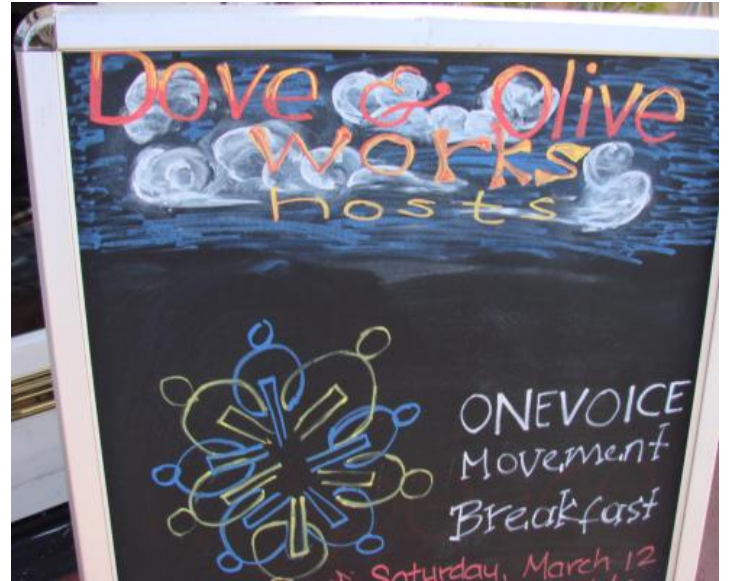 Dove & Olive
works
hosts
ONEVOICE
Movement
Breakfast
Saturday, March 12